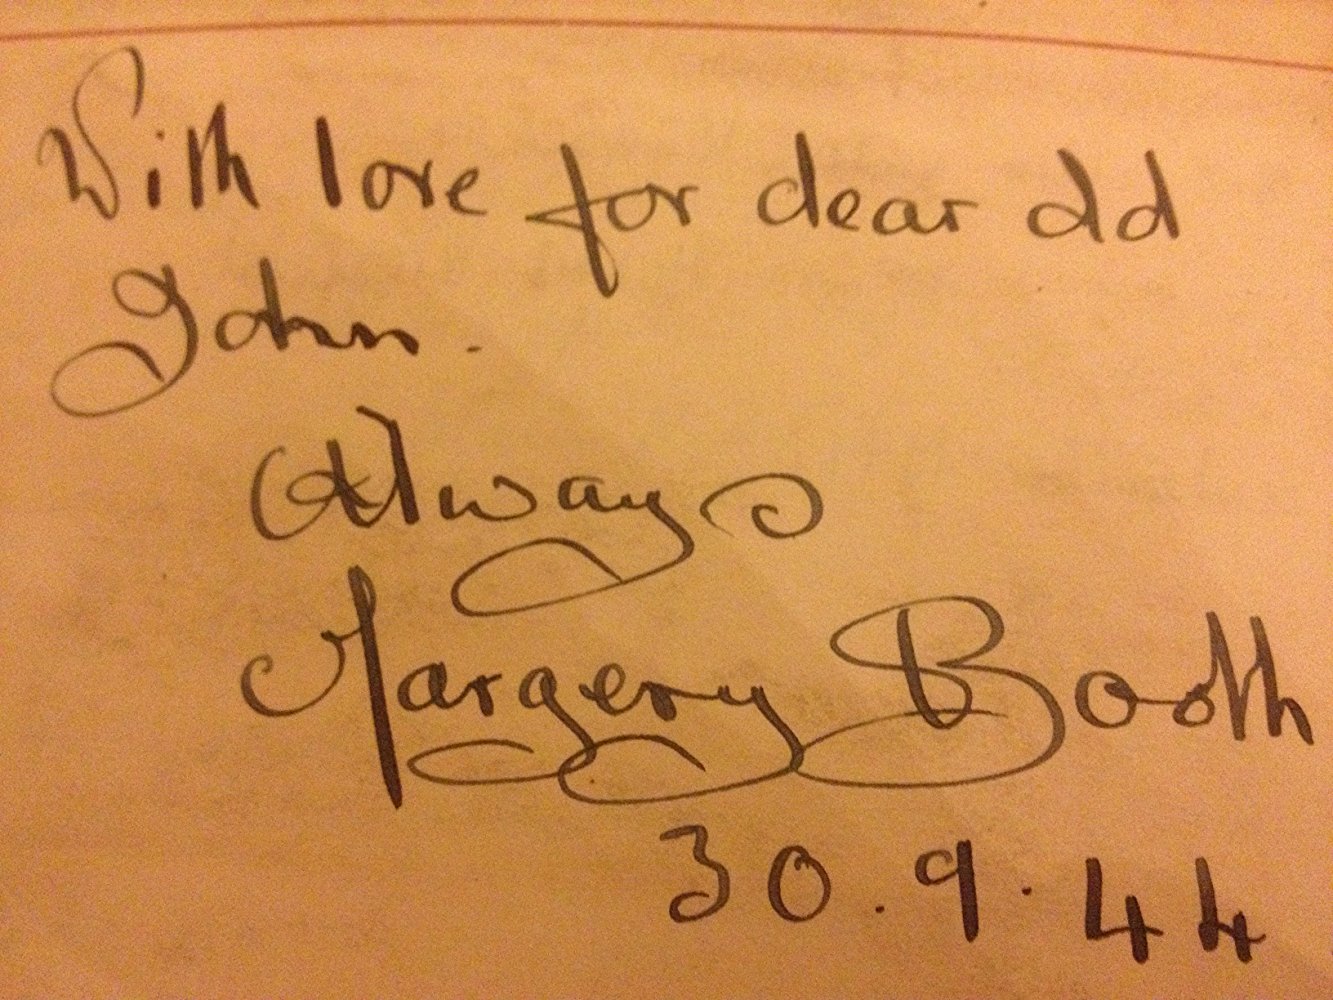 With love for dear old
John.
Always
Margery Booth
30.9.44